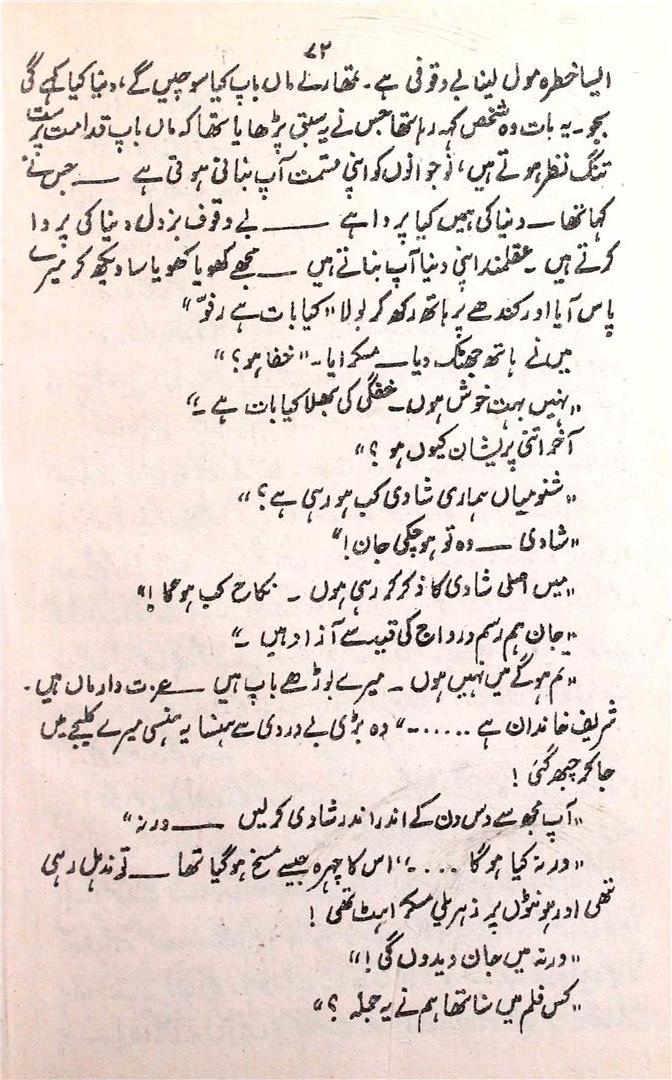 ۷۲
ایسا خطرہ مول لینا بے وقوفی ہے۔ تمھارے ماں باپ کیا سوچیں گے، دنیا کیا کہے گی
بجو۔ یہ بات وہ شخص کہہ رہا تھا جس نے یہ سبق پڑھایا تھا کہ ماں باپ قدامت پرست
تنگ نظر ہوتے ہیں، نوجوانوں کو اپنی قسمت آپ بنانی ہوتی ہے ــــ جس نے
کہا تھا ــ دنیا کی ہمیں کیا پروا ہے ــــ بے وقوف بزدل دنیا کی پروا
کرتے ہیں۔ عقلمند اپنی دنیا آپ بناتے ہیں ــــ مجھے کھویا کھویا سا دیکھ کر میرے
پاس آیا اور کندھے پر ہاتھ رکھ کر بولا "کیا بات ہے رفّو"
میں نے ہاتھ جھٹک دیا ــ مسکرایا۔ "خفا ہو؟"
"نہیں بہت خوش ہوں۔ خفگی کی بھلا کیا بات ہے۔"
آخر اتنی پریشان کیوں ہو؟"
"شنو میاں ہماری شادی کب ہو رہی ہے؟"
"شادی ــــ وہ تو ہو چکی جان!"
"میں اصلی شادی کا ذکر کر رہی ہوں۔ نکاح کب ہوگا!"
"جان ہم رسم و رواج کی قید سے آزاد ہیں۔"
"تم ہوگے میں نہیں ہوں۔ میرے بوڑھے باپ ہیں ــــ عزت دار ماں ہیں۔
شریف خاندان ہے ......۔" وہ بڑی بے دردی سے ہنسا یہ ہنسی میرے کلیجے میں
جا کر چبھ گئی!
"آپ مجھ سے دس دن کے اندر اندر شادی کرلیں ــــ ورنہ"
"ورنہ کیا ہوگا ....۔" اس کا چہرہ جیسے مسخ ہو گیا تھا ــــ توند ہل رہی
تھی اور ہونٹوں پر زہریلی مسکراہٹ تھی!
"ورنہ میں جان دیدوں گی!"
"کس فلم میں سنا تھا ہم نے یہ جملہ؟"